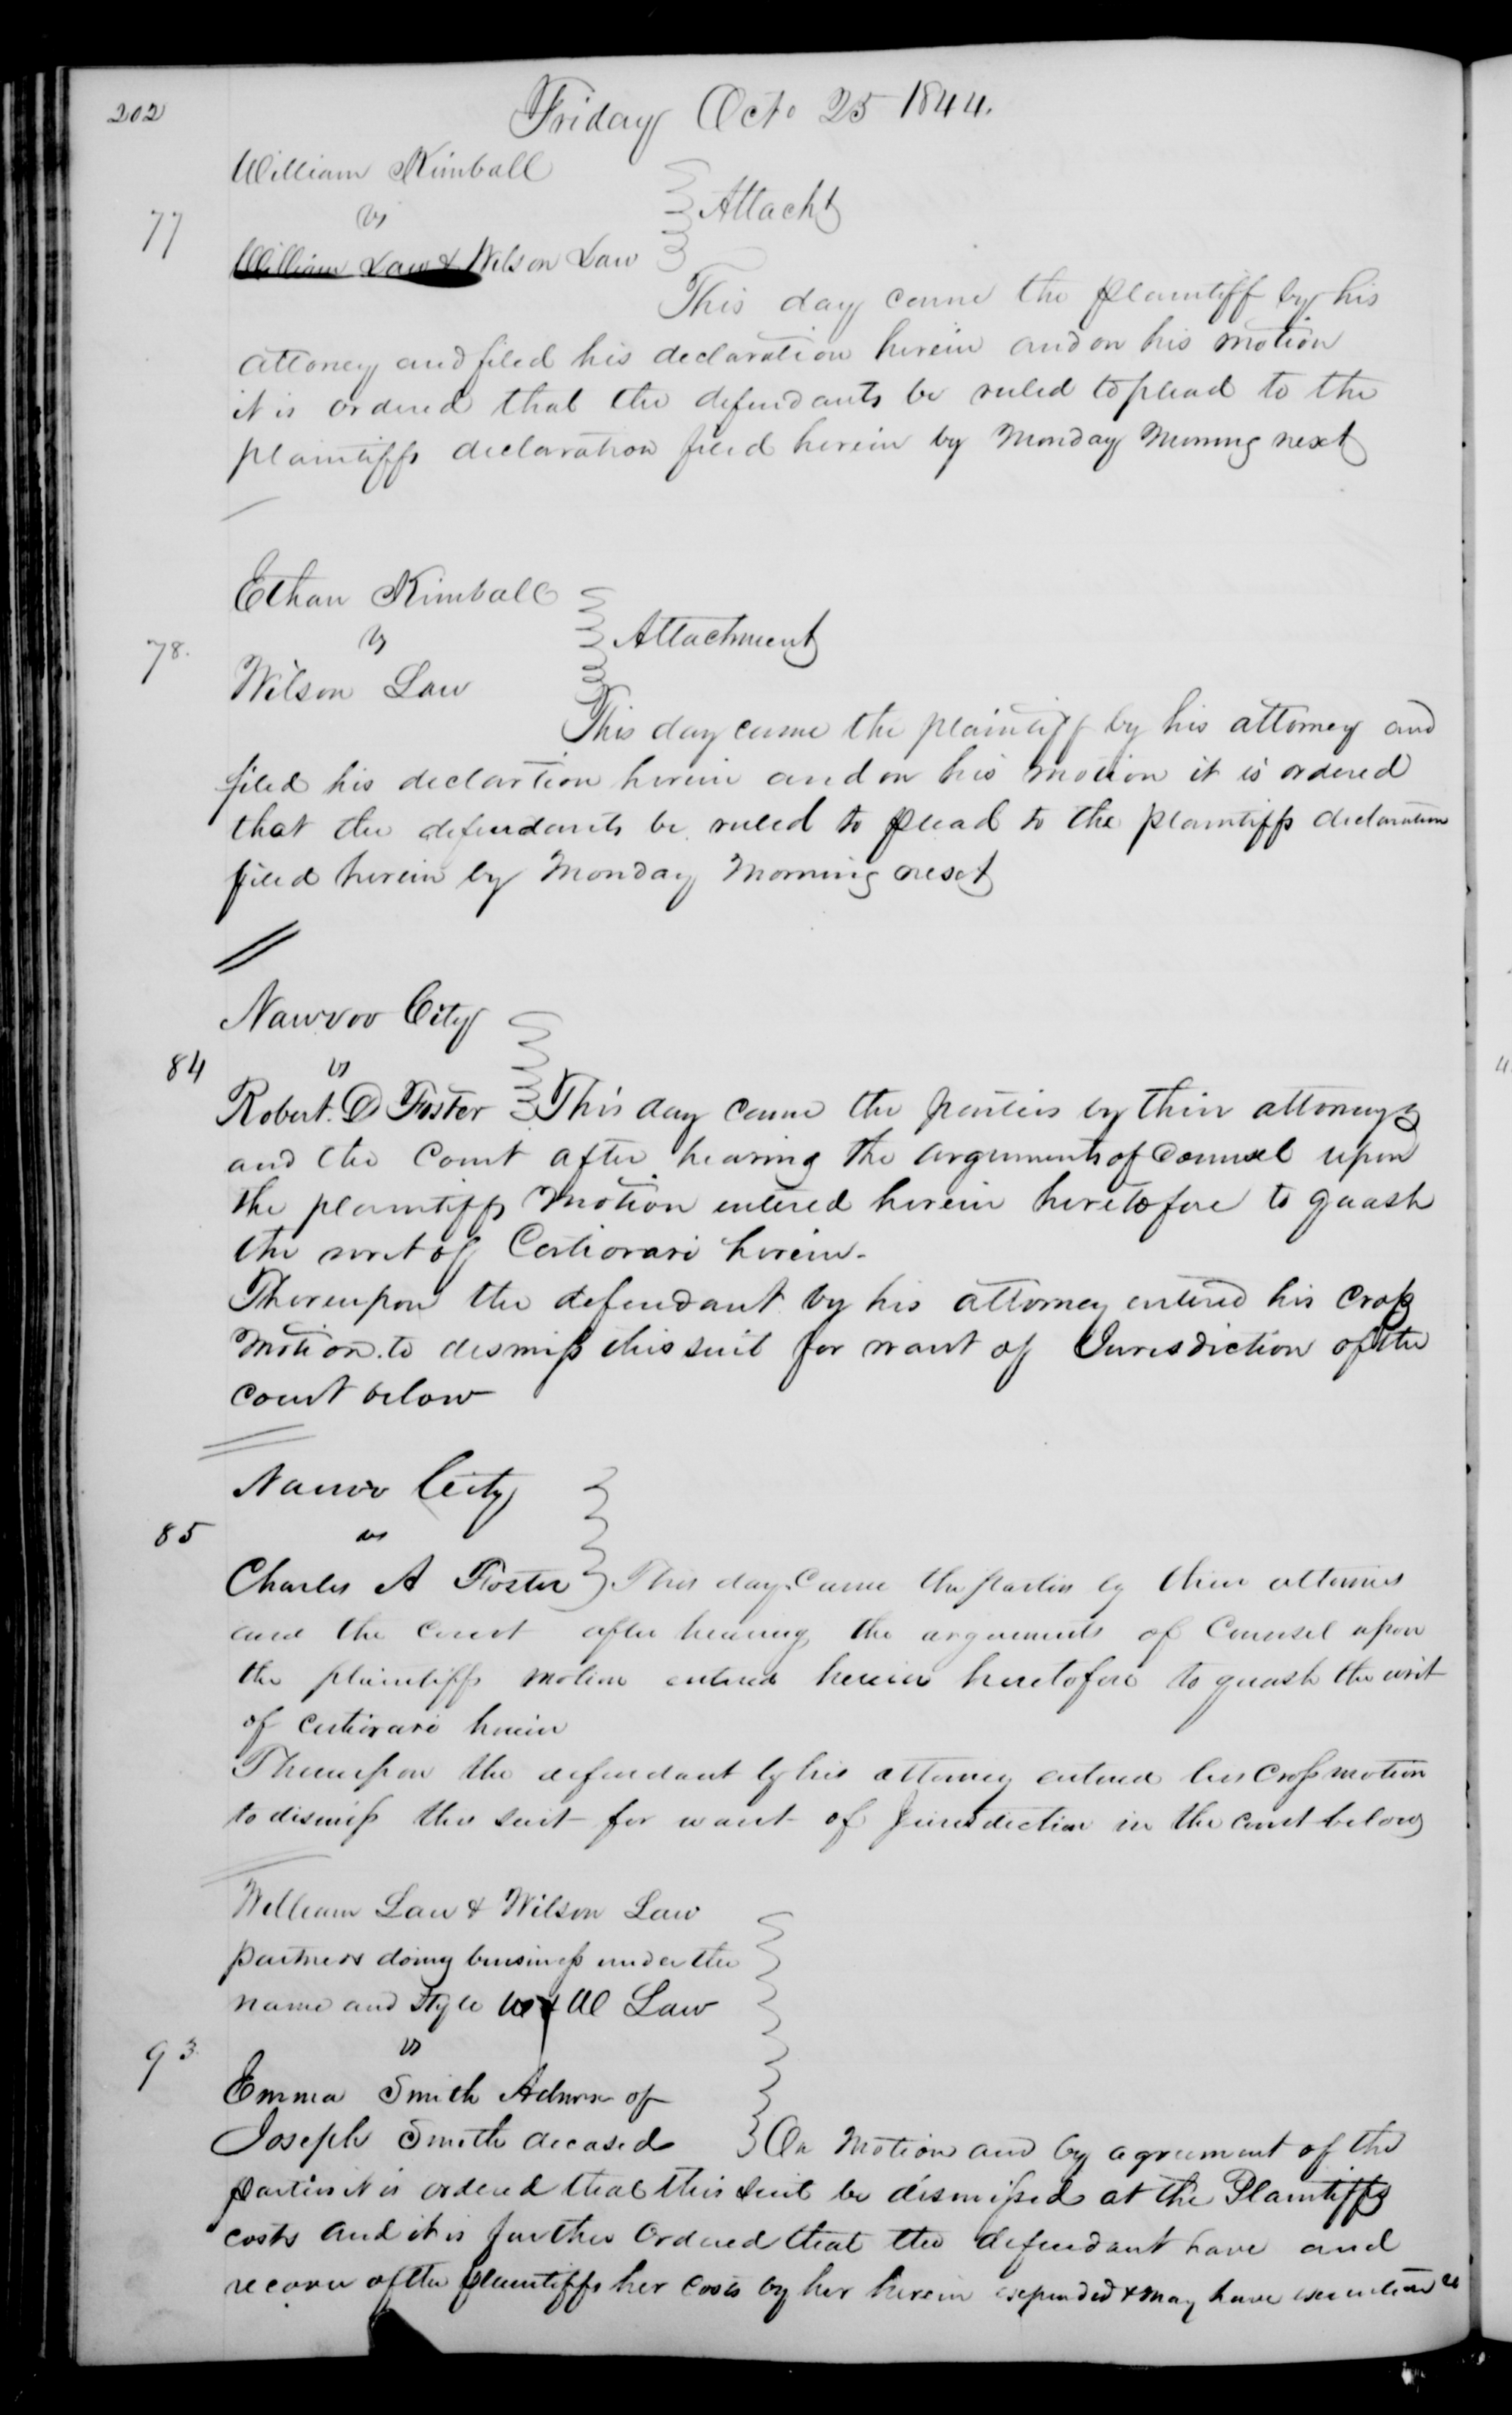 202
Friday Octo 25 1844.
William Kimball
77 vs } Attacht
William Law & Wilson Law
This day came the plaintiff by his
attorney and filed his declaration herein and on his motion
it is ordered that the defendants be ruled to plead to the
plaintiffs declaration filed herein by Monday Morning next
Ethan Kimball
78. vs } Attachment
Wilson Law
This day came the plaintiff by his attorney and
filed his declartion herein and on his motion it is ordered
that the defendants be ruled to plead to the plaintiffs declaration
filed herein by Monday Morning next
Nauvoo City
84 vs
Robert. D Foster } This day came the parties by their attorneys
and the Court after hearing the arguments of Counsel upon
the plaintiffs Motion entered herein heretofore to quash
the writ of Certiorari herein.
Thereupon the defendant by his attorney entered his Cross
Motion to dismiss this suit for want of Jurisdiction of the
court below
Nauvo City
85 vs
Charles A Foster } This day Came the parties by their attornies
and the Court after hearing the arguments of Counsel upon
the plaintiffs motion entered herein heretofore to quash the writ
of certiorari herein
Thereupon the defendant by his attorney entered his Cross motion
to dismiss this suit for want of Jurisdiction in the court below
William Law & Wilson Law
partners doing business under the
name and Style W & W Law
93 vs
Emma Smith Admrx of
Joseph Smith decased } On Motion and by agreement of the
parties it is ordered that this Suit be dismissed at the Plaintiffs
costs and it is further Ordered that the defendant have and
recover of the plaintiffs her costs by her herein expended & may have execution &c